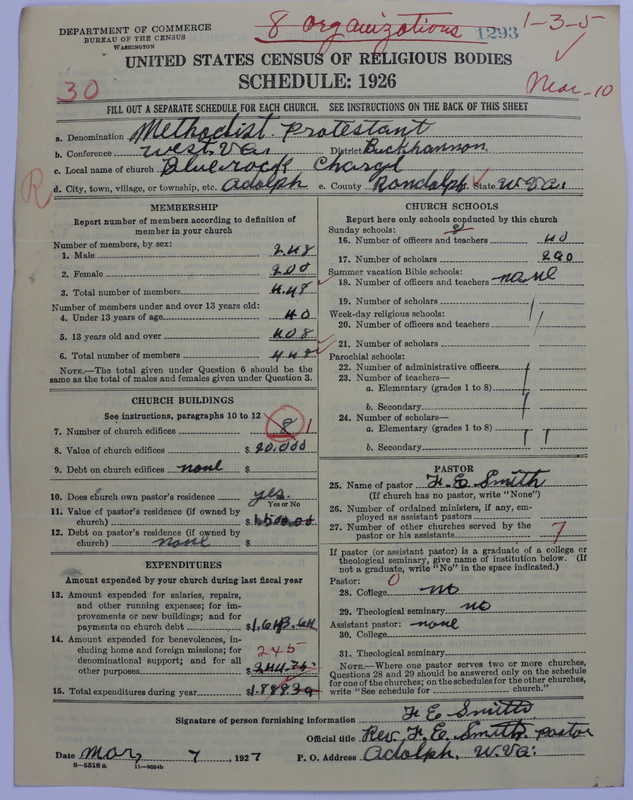 8 organizations 1-3-5
DEPARTMENT OF COMMERCE 1293
BUREAU OF THE CENSUS
WASHINGTON
UNITED STATES CENSUS OF RELIGIOUS BODIES
SCHEDULE: 1926
30 Mar-10
FILL OUT A SEPARATE SCHEDULE FOR EACH CHURCH. SEE INSTRUCTIONS ON THE BACK OF THIS SHEET
a. Denomination Methodist Protestant
b. Conference West Va District Buckhannon
c. Local name of church Bluerock Charge
d. City, town, village, or township, etc. Adolph e. County Randolph State W. Va.
R
MEMBERSHIP
Report number of members according to definition of
member in your church
Number of members, by sex:
1. Male 248
2. Female 200
3. Total number of members 448
Number of members under and over 13 years old:
4. Under 13 years of age 40
5. 13 years old and over 408
6. Total number of members 448
NOTE.—The total given under Question 6 should be
same as the total of males and females given under Question 3.
CHURCH BUILDINGS
See instructions, paragraphs 10 to 12
7. Number of church edifices 8 1
8. Value of church edifices $ 20,000
9. Debt on church edifices none $
10. Does church own pastor's residence yes.
Yes or No
11. Value of pastor's residence (if owned by
church) $1,500.00
12. Debt on pastor's residence (if owned by
church) none $
EXPENDITURES
Amount expended by your church during last fiscal year
13. Amount expended for salaries, repairs,
and other running expenses; for im-
provements or new buildings; and for
payments on church debt $1,643.64
14. Amount expended for benevolences, in-
cluding home and foreign missions; for 245
denominational support; and for all
other purposes $
15. Total expenditures during year $
CHURCH SCHOOLS
Report here only schools conducted by this church
Sunday schools: 8
16. Number of officers and teachers 40
17. Number of scholars 290
Summer vacation Bible schools:
18. Number of officers and teachers none
19. Number of scholars
Week-day religious schools:
20. Number of officers and teachers
21. Number of scholars
Parochial schools:
22. Number of administrative officers
23. Number of teachers—
a. Elementary (grades 1 to 8)
b. Secondary
24. Number of scholars—
a. Elementary (grades 1 to 8)
b. Secondary
PASTOR
25. Name of pastor F. E. Smith
(If church has no pastor, write "None")
26. Number of ordained ministers, if any, em-
ployed as assistant pastors
27. Number of other churches served by the
pastor or his assistants 7
If pastor (or assistant pastor) is a graduate of a college or
theological seminary, give name of institution below. (If
not a graduate, write "No" in the space indicated.)
Pastor: 0
28. College no
29. Theological seminary no
Assistant pastor: none
30. College
31. Theological seminary
NOTE.—Where one pastor serves two or more churches,
Questions 28 and 29 should be answered only on the schedule
for one of the churches; on the schedules for the other churches,
write "See schedule for church."
Signature of person furnishing information F. E. Smith
Official title Rev. F. E. Smith. pastor
Date Mar, 7, 1927 P. O. Address Adolph, W. Va.
8-5518a 11-9564b